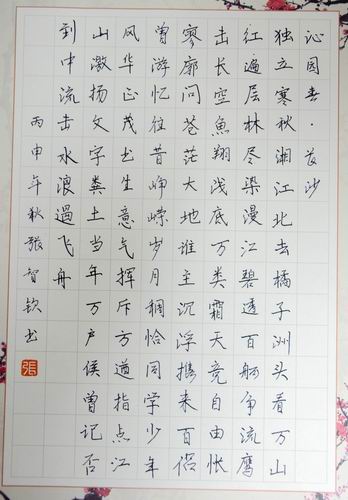 沁园春·长沙
独立寒秋湘江北去橘子洲头看万山
红遍层林尽染漫江碧透百舸争流鹰
击长空魚翔浅底万类霜天竞自由怅
寥廓问苍茫大地谁主沉浮携来百侣
曾游忆往昔峥嵘岁月稠恰同学少年
风华正茂书生意气挥斥方遒指点江
山激扬文字粪土当年万户侯曾记否
到中流击水浪遏飞舟
丙申年秋张智钦书
張